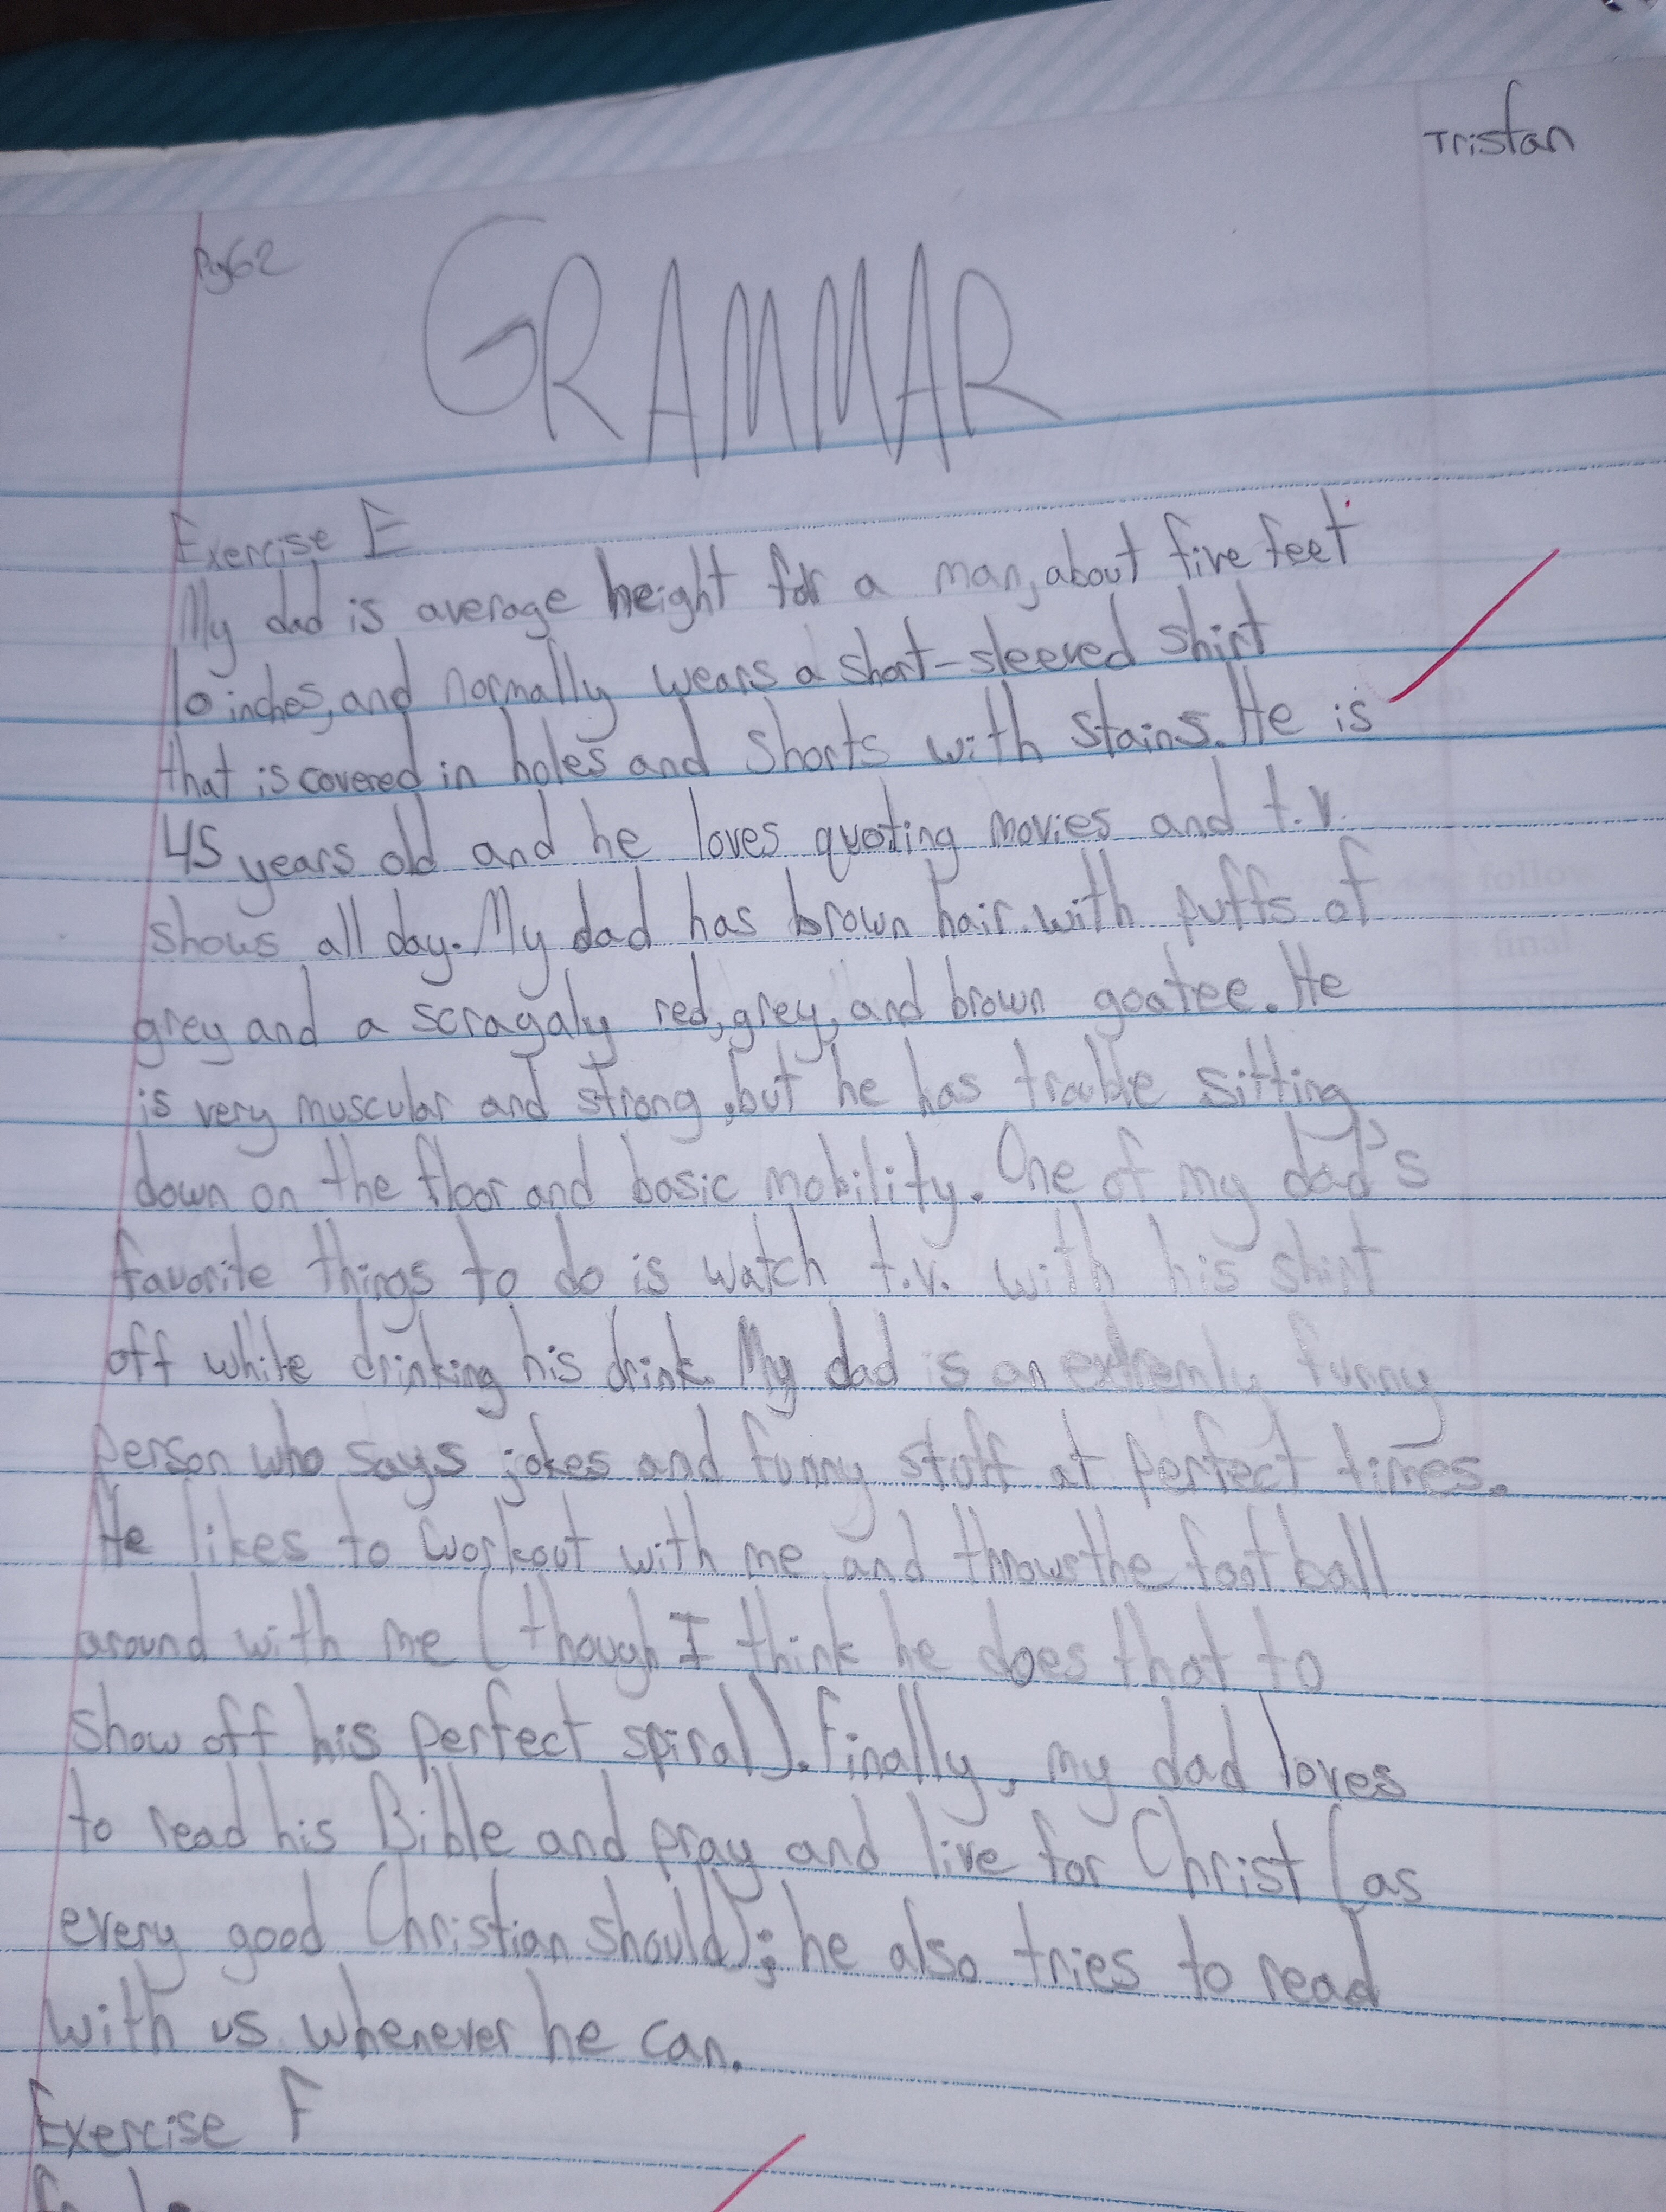 Tristan
Pg62
GRAMMAR
Exercise E
My dad is average height for a man, about five feet
10 inches, and normally wears a short-sleeved shirt
that is covered in holes and shorts with stains. He is
45 years old and he loves quoting movies and t.v.
shows all day. My dad has brown hair with puffs of
grey and a scragaly red, grey, and brown goatee. He
is very muscular and strong, but he has trouble sitting
down on the floor and basic mobility. One of my dad's
favorite things to do is watch t.v. with his shirt
off while drinking his drink. My dad is an extremly funny
person who says jokes and funny stuff at perfect times.
He likes to workout with me and throws the football
around with me (though I think he does that to
show off his perfect spiral). Finally, my dad loves
to read his Bible and pray and live for Christ (as
every good Christian should); he also tries to read
with us whenever he can.
Exercise F